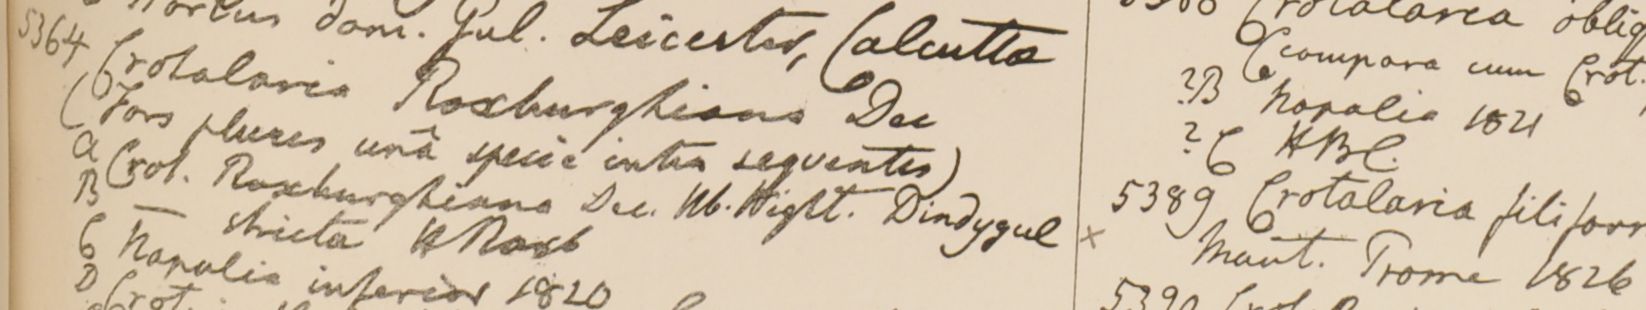 Hortus dom. Gul. Leicester, Calcutta
5364 Crotalaria Roxburghiana Dec
(Fors plures unâ specie inter sequentes)
a Crot. Roxburghiana Dec. Hb. Wight. Dindygul
B — stricta H Roxb
C Napalia inferior 1820
D Crot.
Crotalaria obliq
(compara cum Crot.
?B Napalia 1821
? C HBC.
5389 Crotalaria filiform
× Mont. Prome 1826
5390